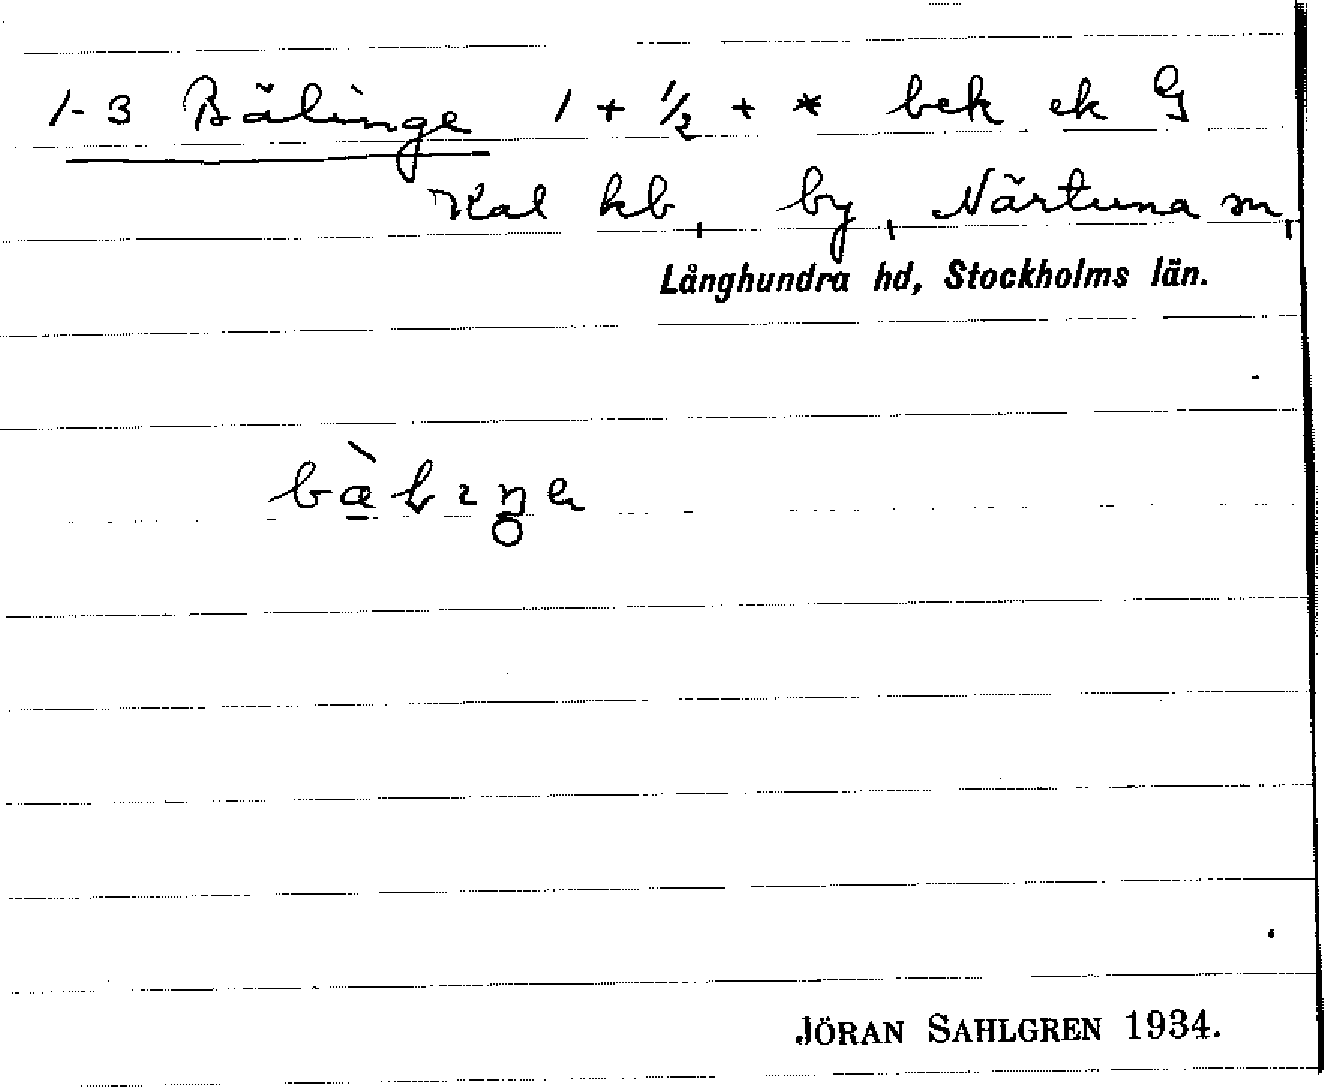 1-3 Bälinge 1 + ½ + * bek ek G
Kal kb, by, Närtuna sn,
Långhundra hd, Stockholms län.
bæ̀lıŋe
JÖRAN SAHLGREN 1934.